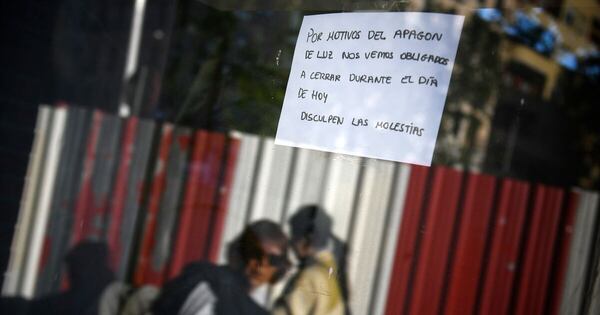 POR MOTIVOS DEL APAGON
DE LUZ NOS VEMOS OBLIGADOS
A CERRAR DURANTE EL DÍA
DE HOY
DISCULPEN LAS MOLESTÍAS